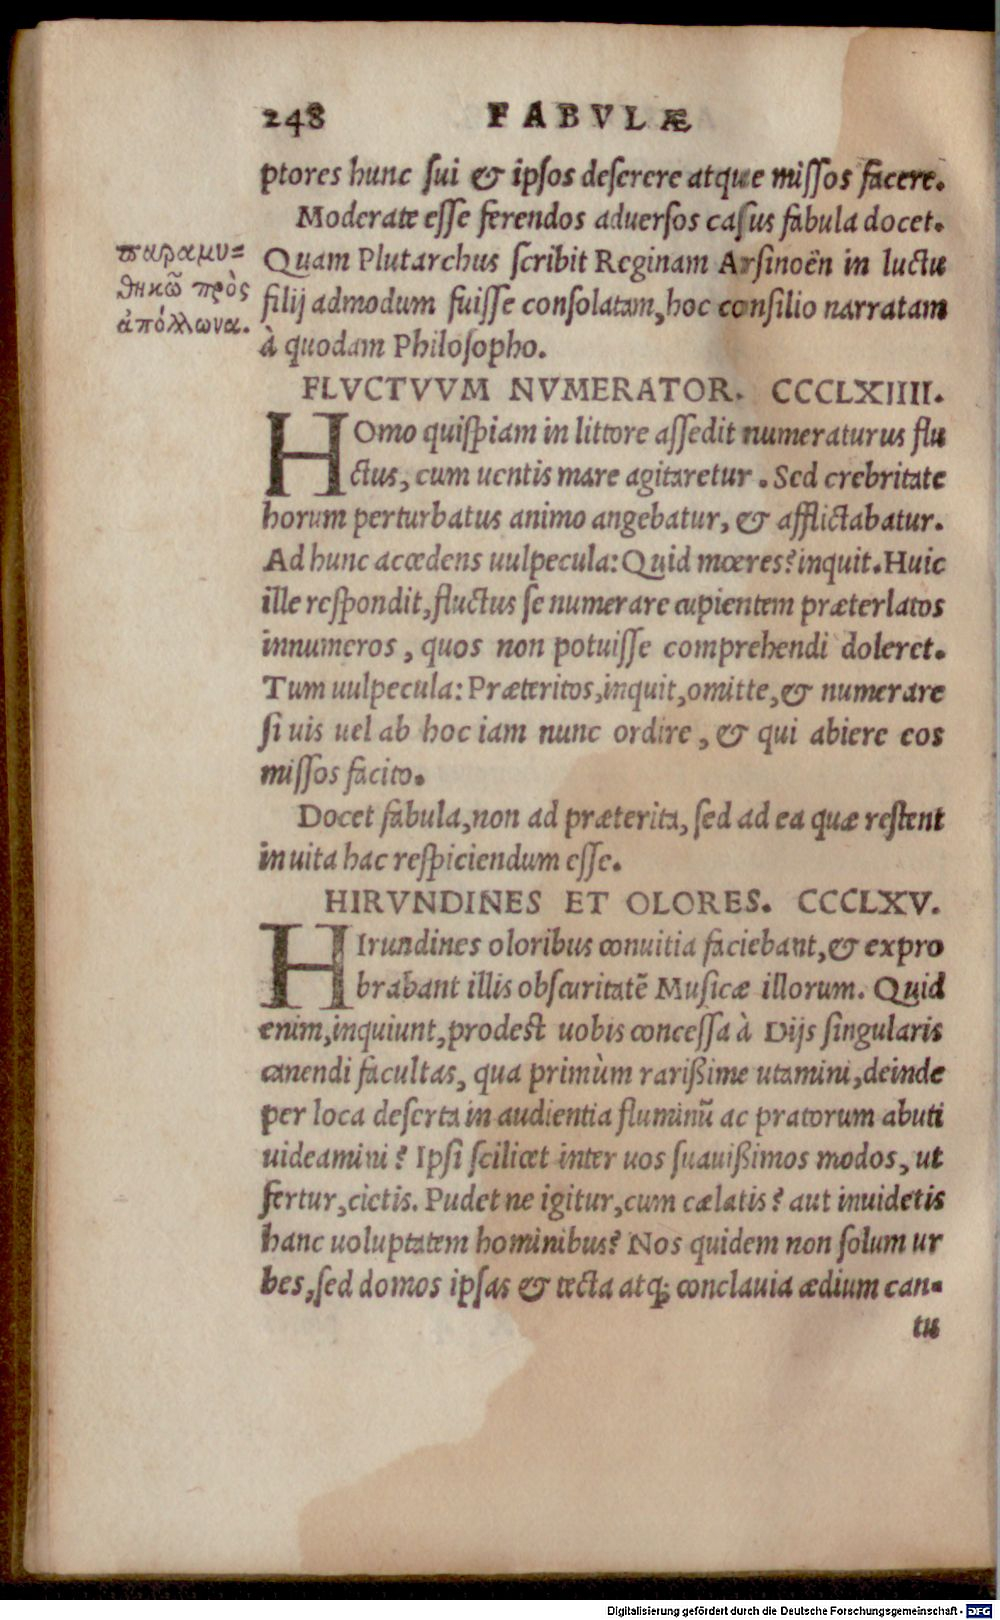 248 FABVLÆ
ptores hunc sui & ipsos deserere atque missos facere.
Moderate esse ferendos aduersos casus fabula docet.
Quam Plutarchus scribit Reginam Arsinoën in luctu
filij admodum fuisse consolatam, hoc consilio narratam
à quodam Philosopho.
παραμυ=
θηκῶ πρὸς
ἀπόλλωνα.
FLVCTVVM NVMERATOR. CCCLXIIII.
HOmo quispiam in littore assedit numeraturus flu
ctus, cum uentis mare agitaretur. Sed crebritate
horum perturbatus animo angebatur, & afflictabatur.
Ad hunc accedens uulpecula: Quid mœres? inquit. Huic
ille respondit, fluctus se numerare cupientem præterlatos
innumeros, quos non potuisse comprehendi doleret.
Tum uulpecula: Præteritos, inquit, omitte, & numerare
si uis uel ab hoc iam nunc ordire, & qui abiere eos
missos facito.
Docet fabula, non ad præterita, sed ad ea quæ restent
in uita hac respiciendum esse.
HIRVNDINES ET OLORES. CCCLXV.
HIrundines oloribus conuitia faciebant, & expro
brabant illis obscuritatẽ Musicæ illorum. Quid
enim, inquiunt, prodest uobis concessa à Dijs singularis
canendi facultas, qua primùm rarißime utamini, deinde
per loca deserta in audientia fluminũ ac pratorum abuti
uideamini? Ipsi scilicet inter uos suauißimos modos, ut
fertur, cietis. Pudet ne igitur, cum cælatis? aut inuidetis
hanc uoluptatem hominibus? Nos quidem non solum ur
bes, sed domos ipsas & tecta atq; conclauia ædium can-
tu
Digitalisierung gefördert durch die Deutsche Forschungsgemeinschaft - DFG